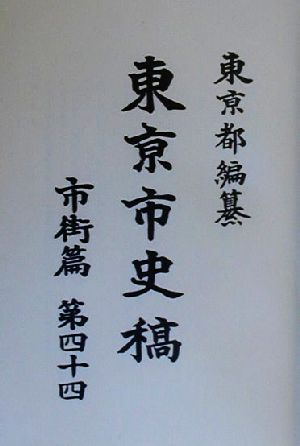 東亰都編纂
東亰市史稿
市街篇 第四十四